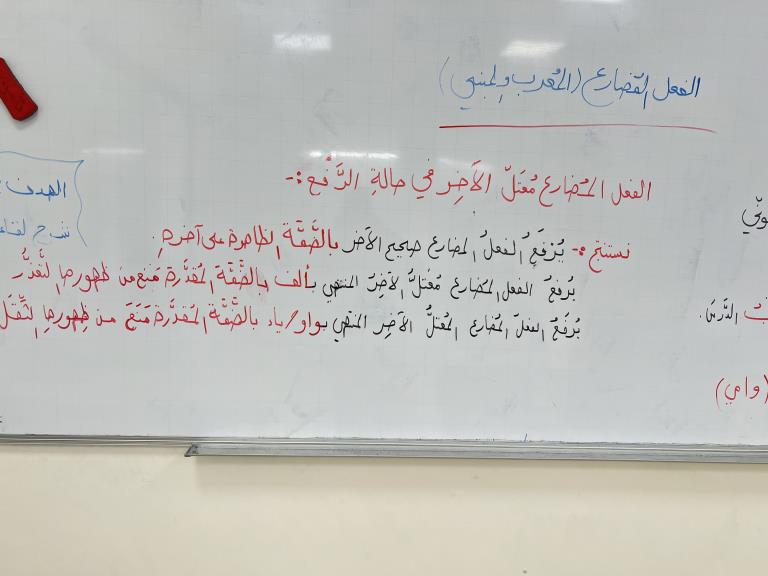 الفعل المُضارع (المُعرب والمبني)
الفعل المُضارع مُعتلّ الآخِر في حالةِ الرَّفْع :-
نستنتج :- يُرفَعُ الفعلُ المضارع صحيح الآخر بالضَّمَّة الظاهرة على آخرهِ.
يُرفعُ الفعل المُضارع مُعتلُّ الآخِرُ المنتهي بألف بالضَّمَّة المُقدَّرة مَنَعَ من ظهورها التَّعذُّر
يُرفَعُ الفعلُ المُضارع المُعتلُّ الآخِر المنتهي بواو/ياء بالضَّمَّة المُقدَّرة مَنَعَ من ظهورها الثِّقَل
الهدف :
الدَّرس.
(وامي)